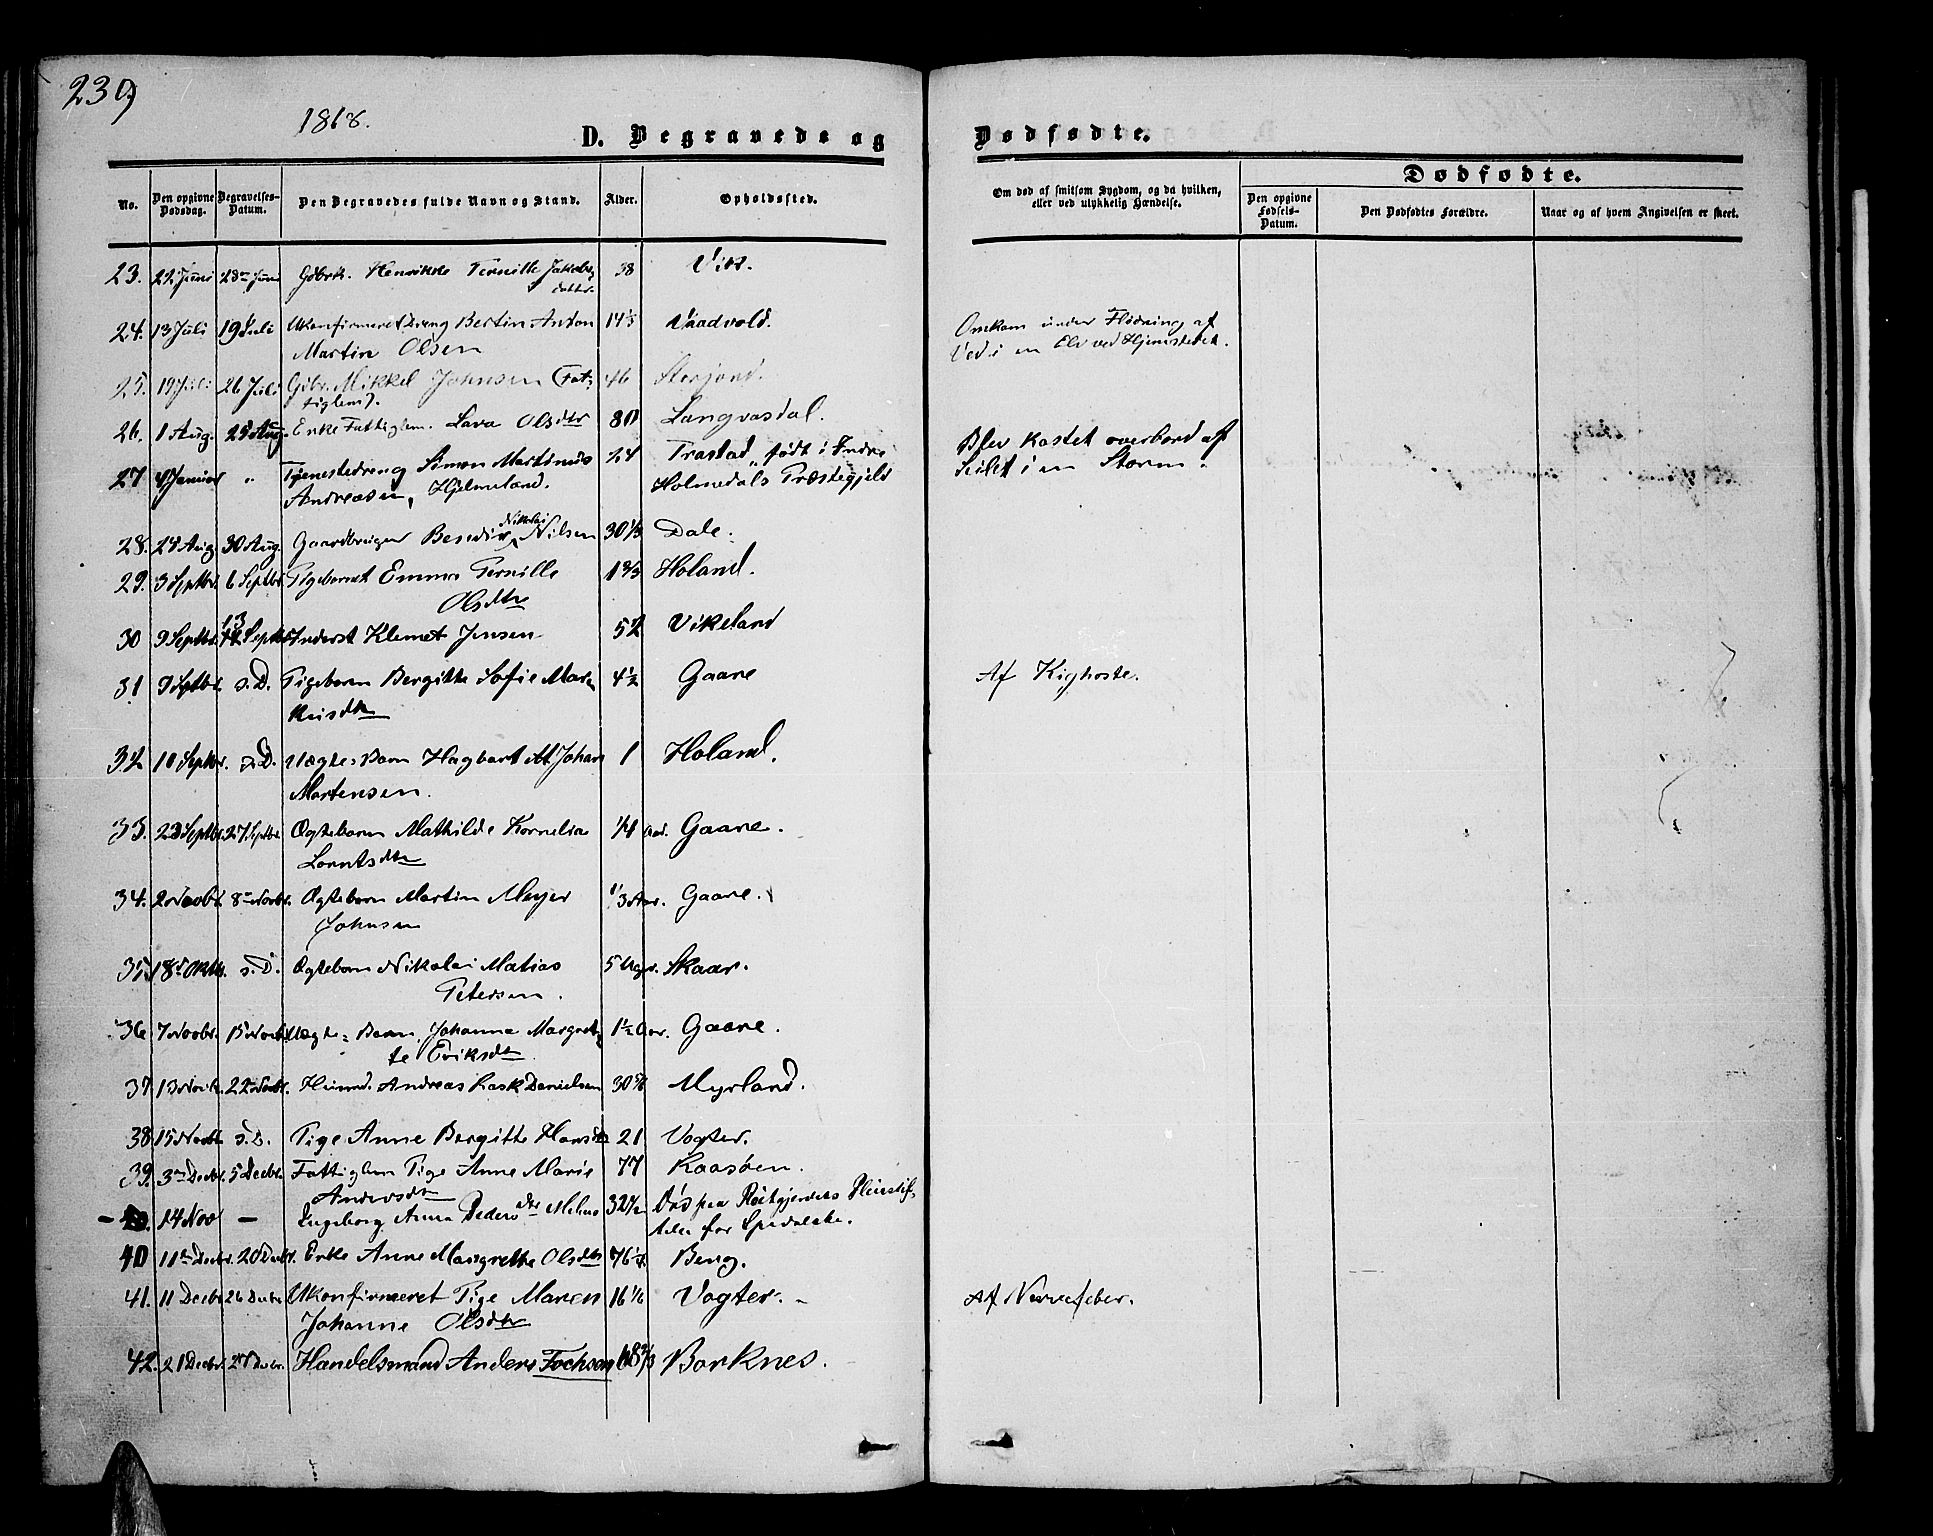 239
1868.
D. Begravede og Dødfødte.
No. Den opgivne Dødsdag. Begravelses-Datum. Den Begravedes fulde Navn og Stand. Alder. Opholdssted. Om død af smitsom Sygdom, og da hvilken, eller ved ulykkelig Hændelse.
Dødfødte.
Den opgivne Fødsels-Datum. Den Dødfødtes Forældre. Naar og af hvem Angivelsen er skeet.
23. 22 Juni 28de Juni Gdbrk. Henrikke Pernille Jakobs
datter 38 Vik.
24. 13 Juli 19 Juli Ukonfirmeret Dreng Bertin Anton 14 1/3 Vaadvold. Omkom under Flødning af
Martin Olsen Ved i en Elv ved Hjemstedet.
25. 19 Juli 26 Juli Gdbr. Mikkel Johnsen (Fat- 46
tiglem).
26. 1 Aug. 23 Aug. Enke Fattiglem. Lava Olsdtr 80 Langvasdal.
27 Januar " Tjenestedreng Simon Martinus 24 Trastad, født i Indre Blev kastet overbord af
Andreasen, Hjelmeland. Holmedals Præstegjeld Seilet i en Storm.
28. 24 Aug. 30 Aug. Gaardbruger Nikolai Nilsen 30 1/3 Dale.
29. 3 Septbr. 6 Septbr. Pigebarnet Emma Pernille 1 2/3 Holand.
Olsdtr
30 9 Septbr. 13 Septbr Inderst Klemet Jensen 52 Vikeland
31 9 Septbr. s. D. Pigebarn Bergitte Sofie Mare 4 1/2 Gaare Af Kighoste.
kusdtr
32 10 Septbr. s. D. Uægte Barn Hagbart M. Johan 1 Holand.
Martensen.
33. 23 Septbr. 27 Septbr Ægtebarn Mathilde Kornelia 1/4 Aar. Gaare.
Lorntsdtr
34. 2 Novbr. 8de Novbr. Ægtebarn Martin Meyer 1/3 Aar. Gaare.
Johnsen
35. 18 Oktb. s. D. Ægtebarn Nikolai Matias 5 Uger. Skaar.
Petersen.
36 7 Novbr. 15 Novbr. Uægte = Barn Johanna Margret- 1 1/2 Aar. Gaare.
te Eriksdtr
37. 13 Novbr. 22 Novbr. Huusmd. Andreas Rask Danielsen 30 Myrland.
38 15 Novbr s. D. Pige Anne Bergitte Hansdtr 21 Vogter.
39. 3de Decbr. 5 Decbr. Fattiglem Pige Anne Marie 77 Kaasøen.
Andersdtr
14 Nov — Ingeborg Anna Pedersdtr 32 1/2 Død paa Reitgjerdets Pleiestif-
telse for Spedalske.
40 11te Decbr. 20 Decbr. Enke Anne Margrethe Olsdtr 76 1/4 Berg.
41. 11 Decbr 26 Decbr Ukonfirmeret Pige Maren 16 1/6 Vogter. Af Nervefeber.
Johanne Olsdtr
42. 21 Decbr. Decbr. Handelsmand Anders Fochsen 68 2/3 Borknes.